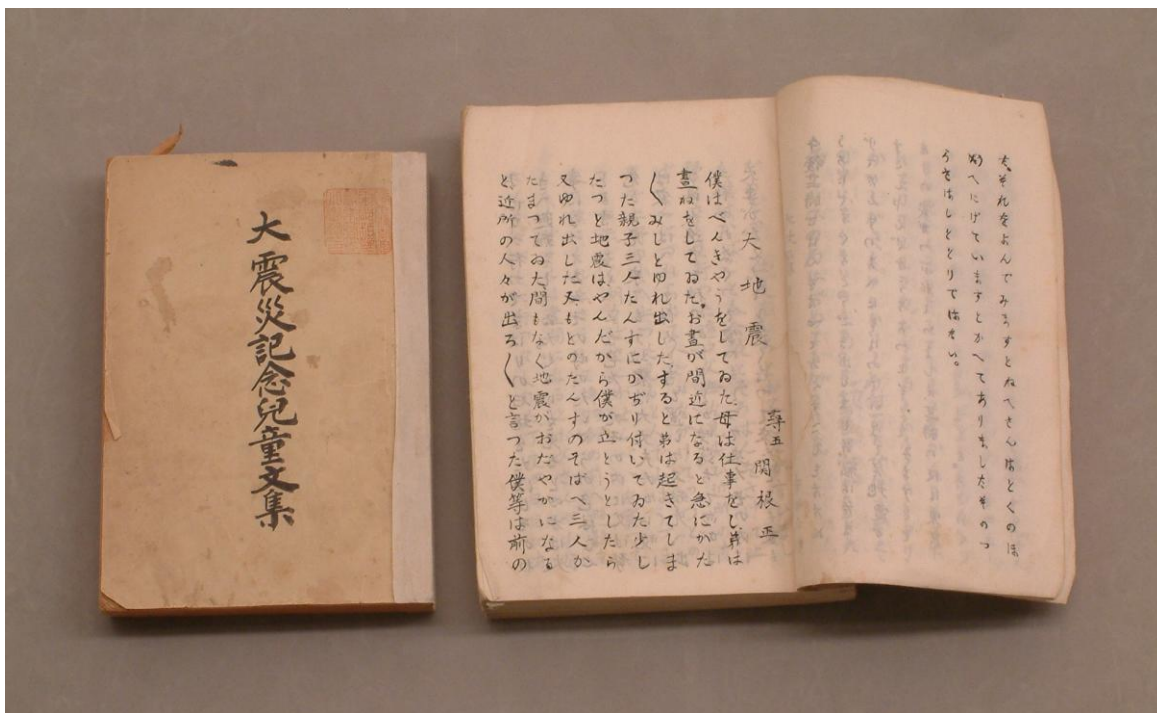 大震災記念兒童文集
それをよんでみますとねへさんはとくのほ
へにげていますとかへてありましたそのつ
大地震
尋五 関根正
僕はべんきやうをしてゐた、母は仕事をし、弟は
晝ねをしてゐた。お晝が間近になると急にがた
〱みしとゆれ出した、すると弟は起きてしま
つた親子三人たんすにかぢり付いてゐた少し
たつと地震はやんだから僕が立とうとしたら
又ゆれ出した又もとのたんすのそばへ三人か
たまつてゐた間もなく地震がおだやかになる
と近所の人々が出ろ〱と言つた僕等は前の